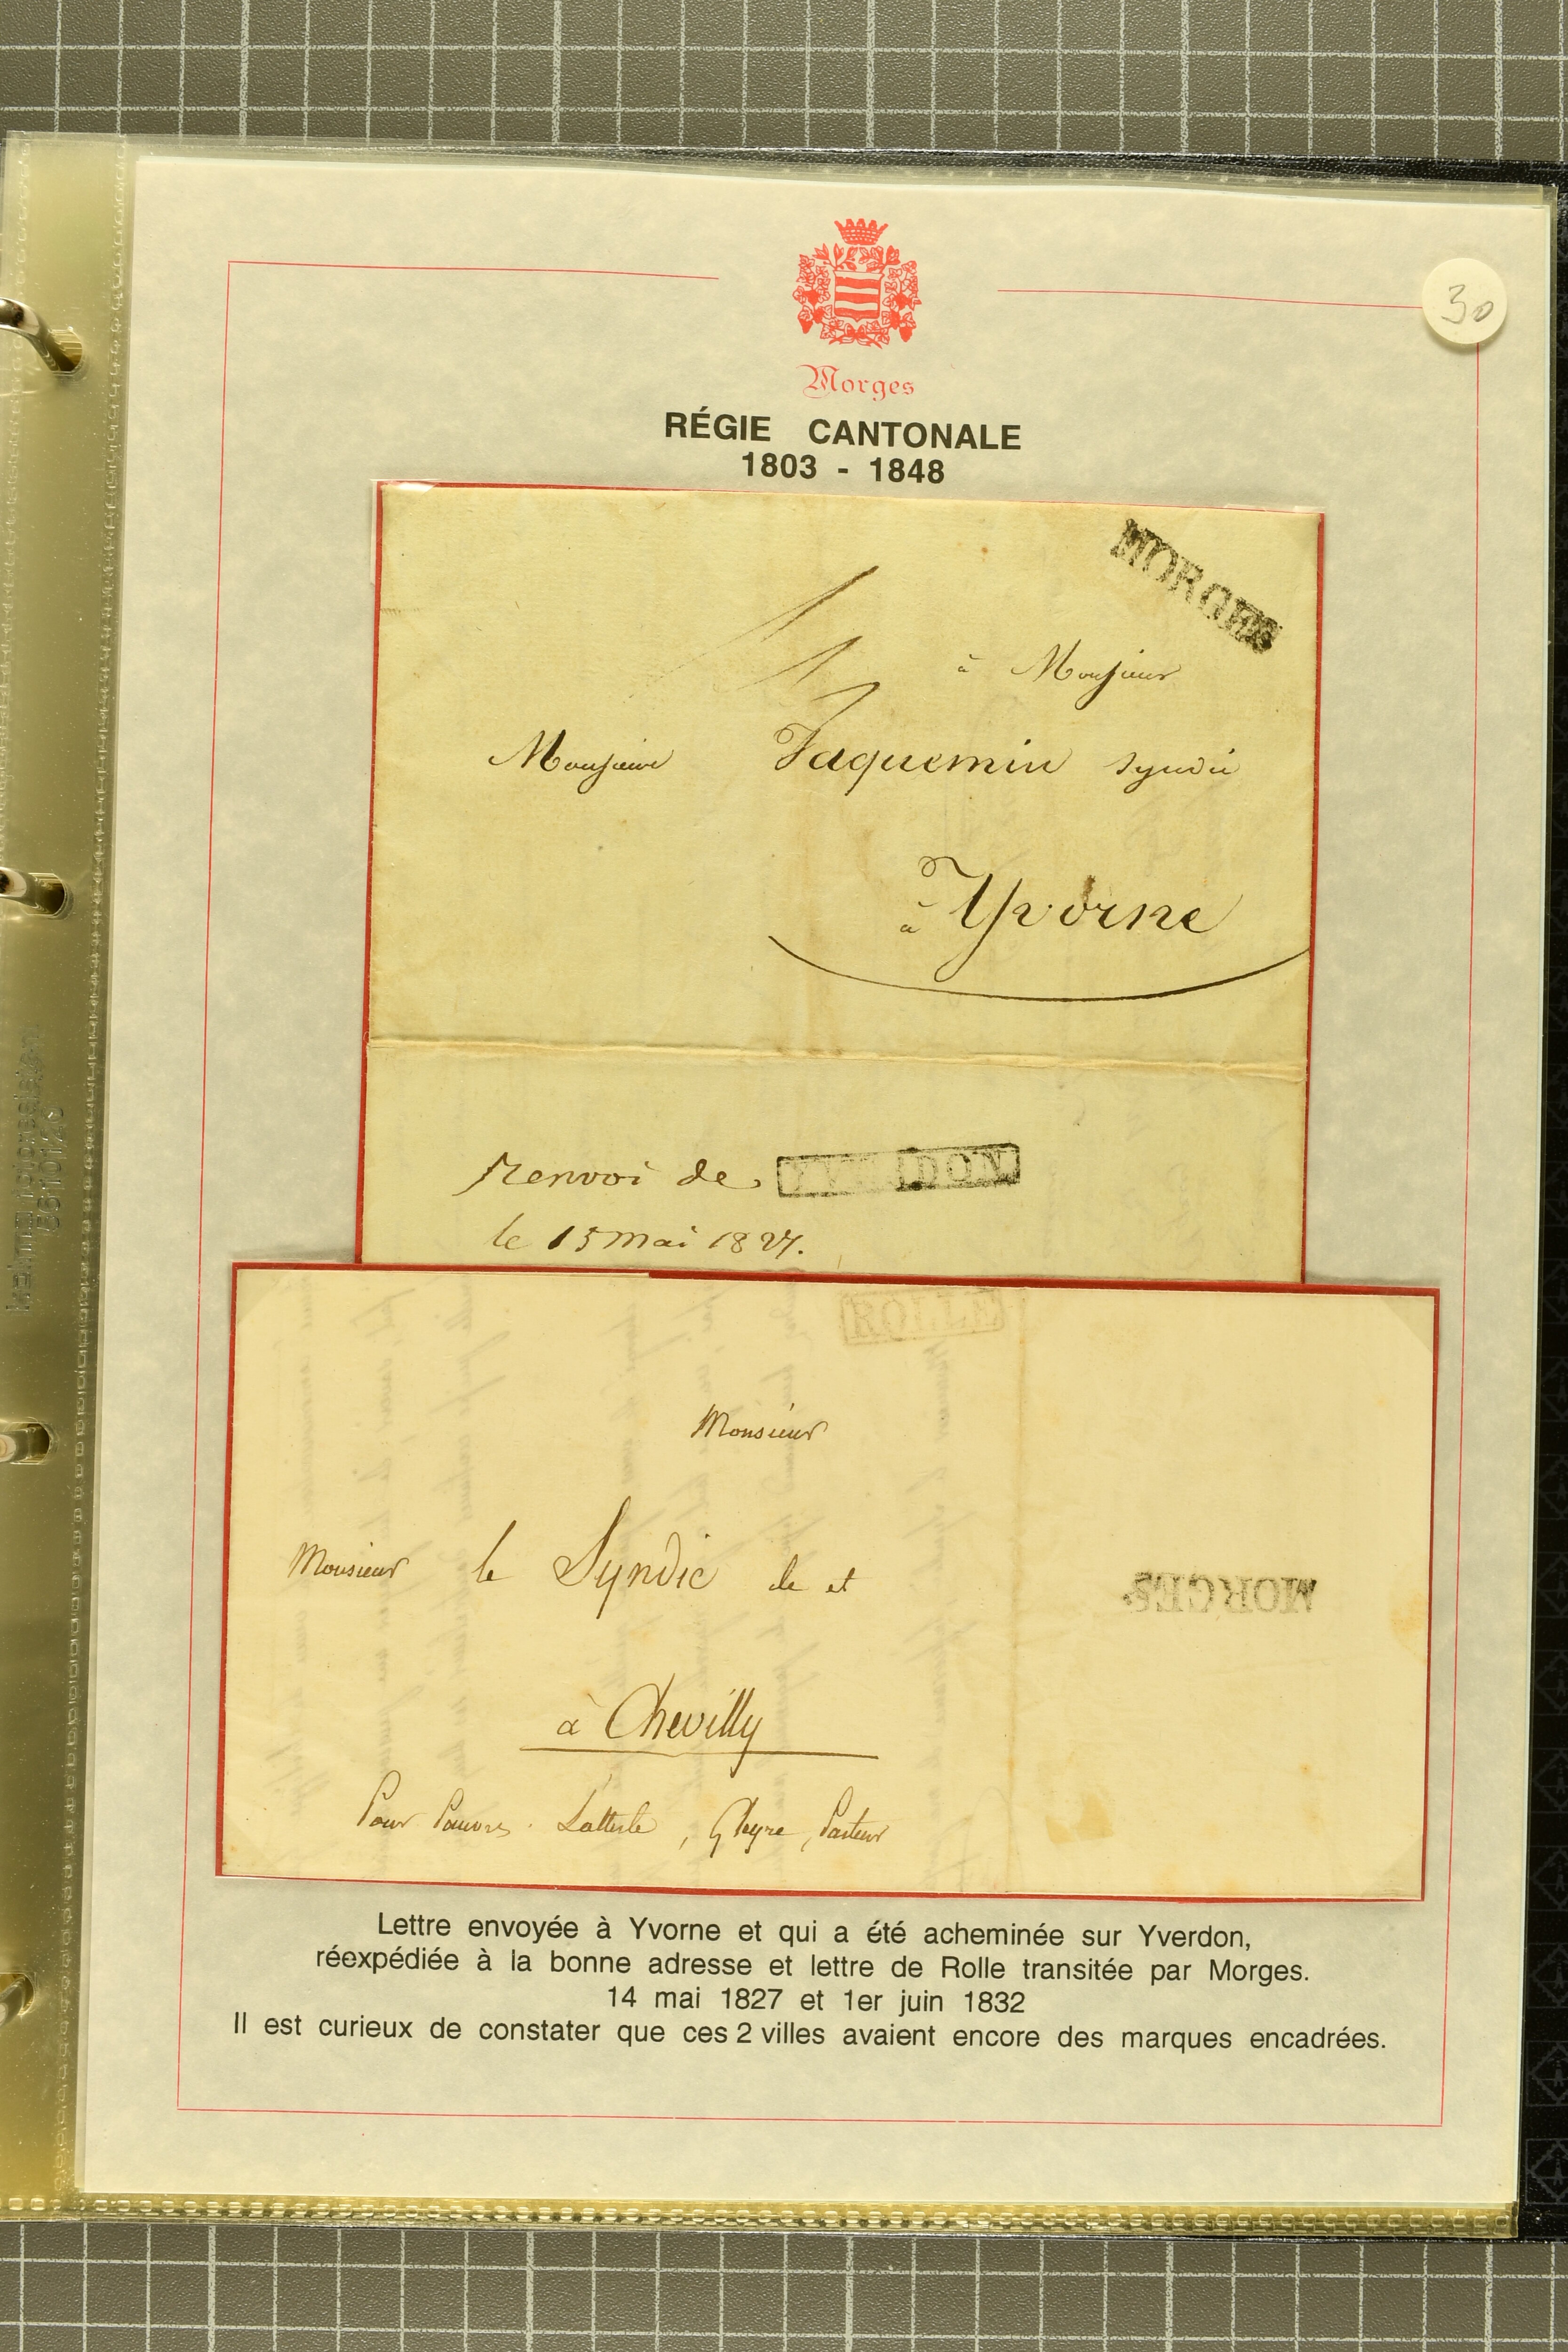 Morges
30
RÉGIE CANTONALE
1803 - 1848
MORGES
à Monsieur
Monsieur Jaquemin syndic
à Yvorne
Renvoi de YVERDON
le 15 mai 1827.
ROLLE
Monsieur
Monsieur le Syndic de et
à Chevilly
MORGES
Pour Pauvres. , Gleyre, Pasteur
Lettre envoyée à Yvorne et qui a été acheminée sur Yverdon,
réexpédiée à la bonne adresse et lettre de Rolle transitée par Morges.
14 mai 1827 et 1er juin 1832
Il est curieux de constater que ces 2 villes avaient encore des marques encadrées.